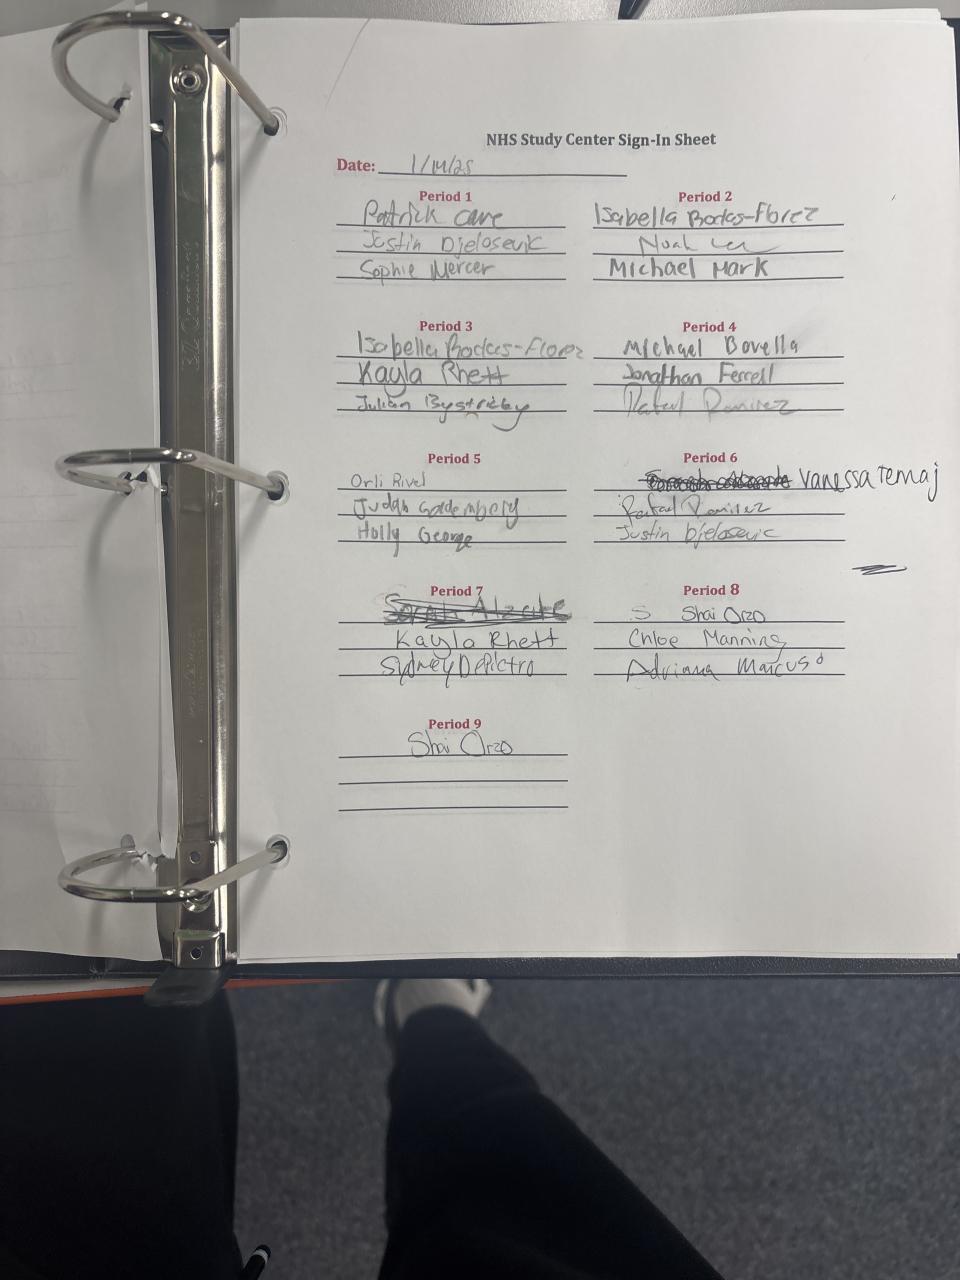 NHS Study Center Sign-In Sheet
Date: 1/14/25
Period 1
Patrick Cane
Justin Djelosevic
Sophie Mercer
Period 2
Isabella Rodas-Florez
Noah
Michael Mark
Period 3
Isabella Rodas-Florez
Kayla Rhett
Julian Bystricky
Period 4
Michael Bovella
Jonathan Ferrell
Rafael Ramirez
Period 5
Orli Rivel
Judah
Holly George
Period 6
Vanessa Temaj
Rafael Ramirez
Justin Djelosevic
Period 7
Sarah Alzate
Kayla Rhett
Sydney DePietro
Period 8
S Shai Orzo
Chloe Manning
Adriana Marcuso
Period 9
Shai Orzo